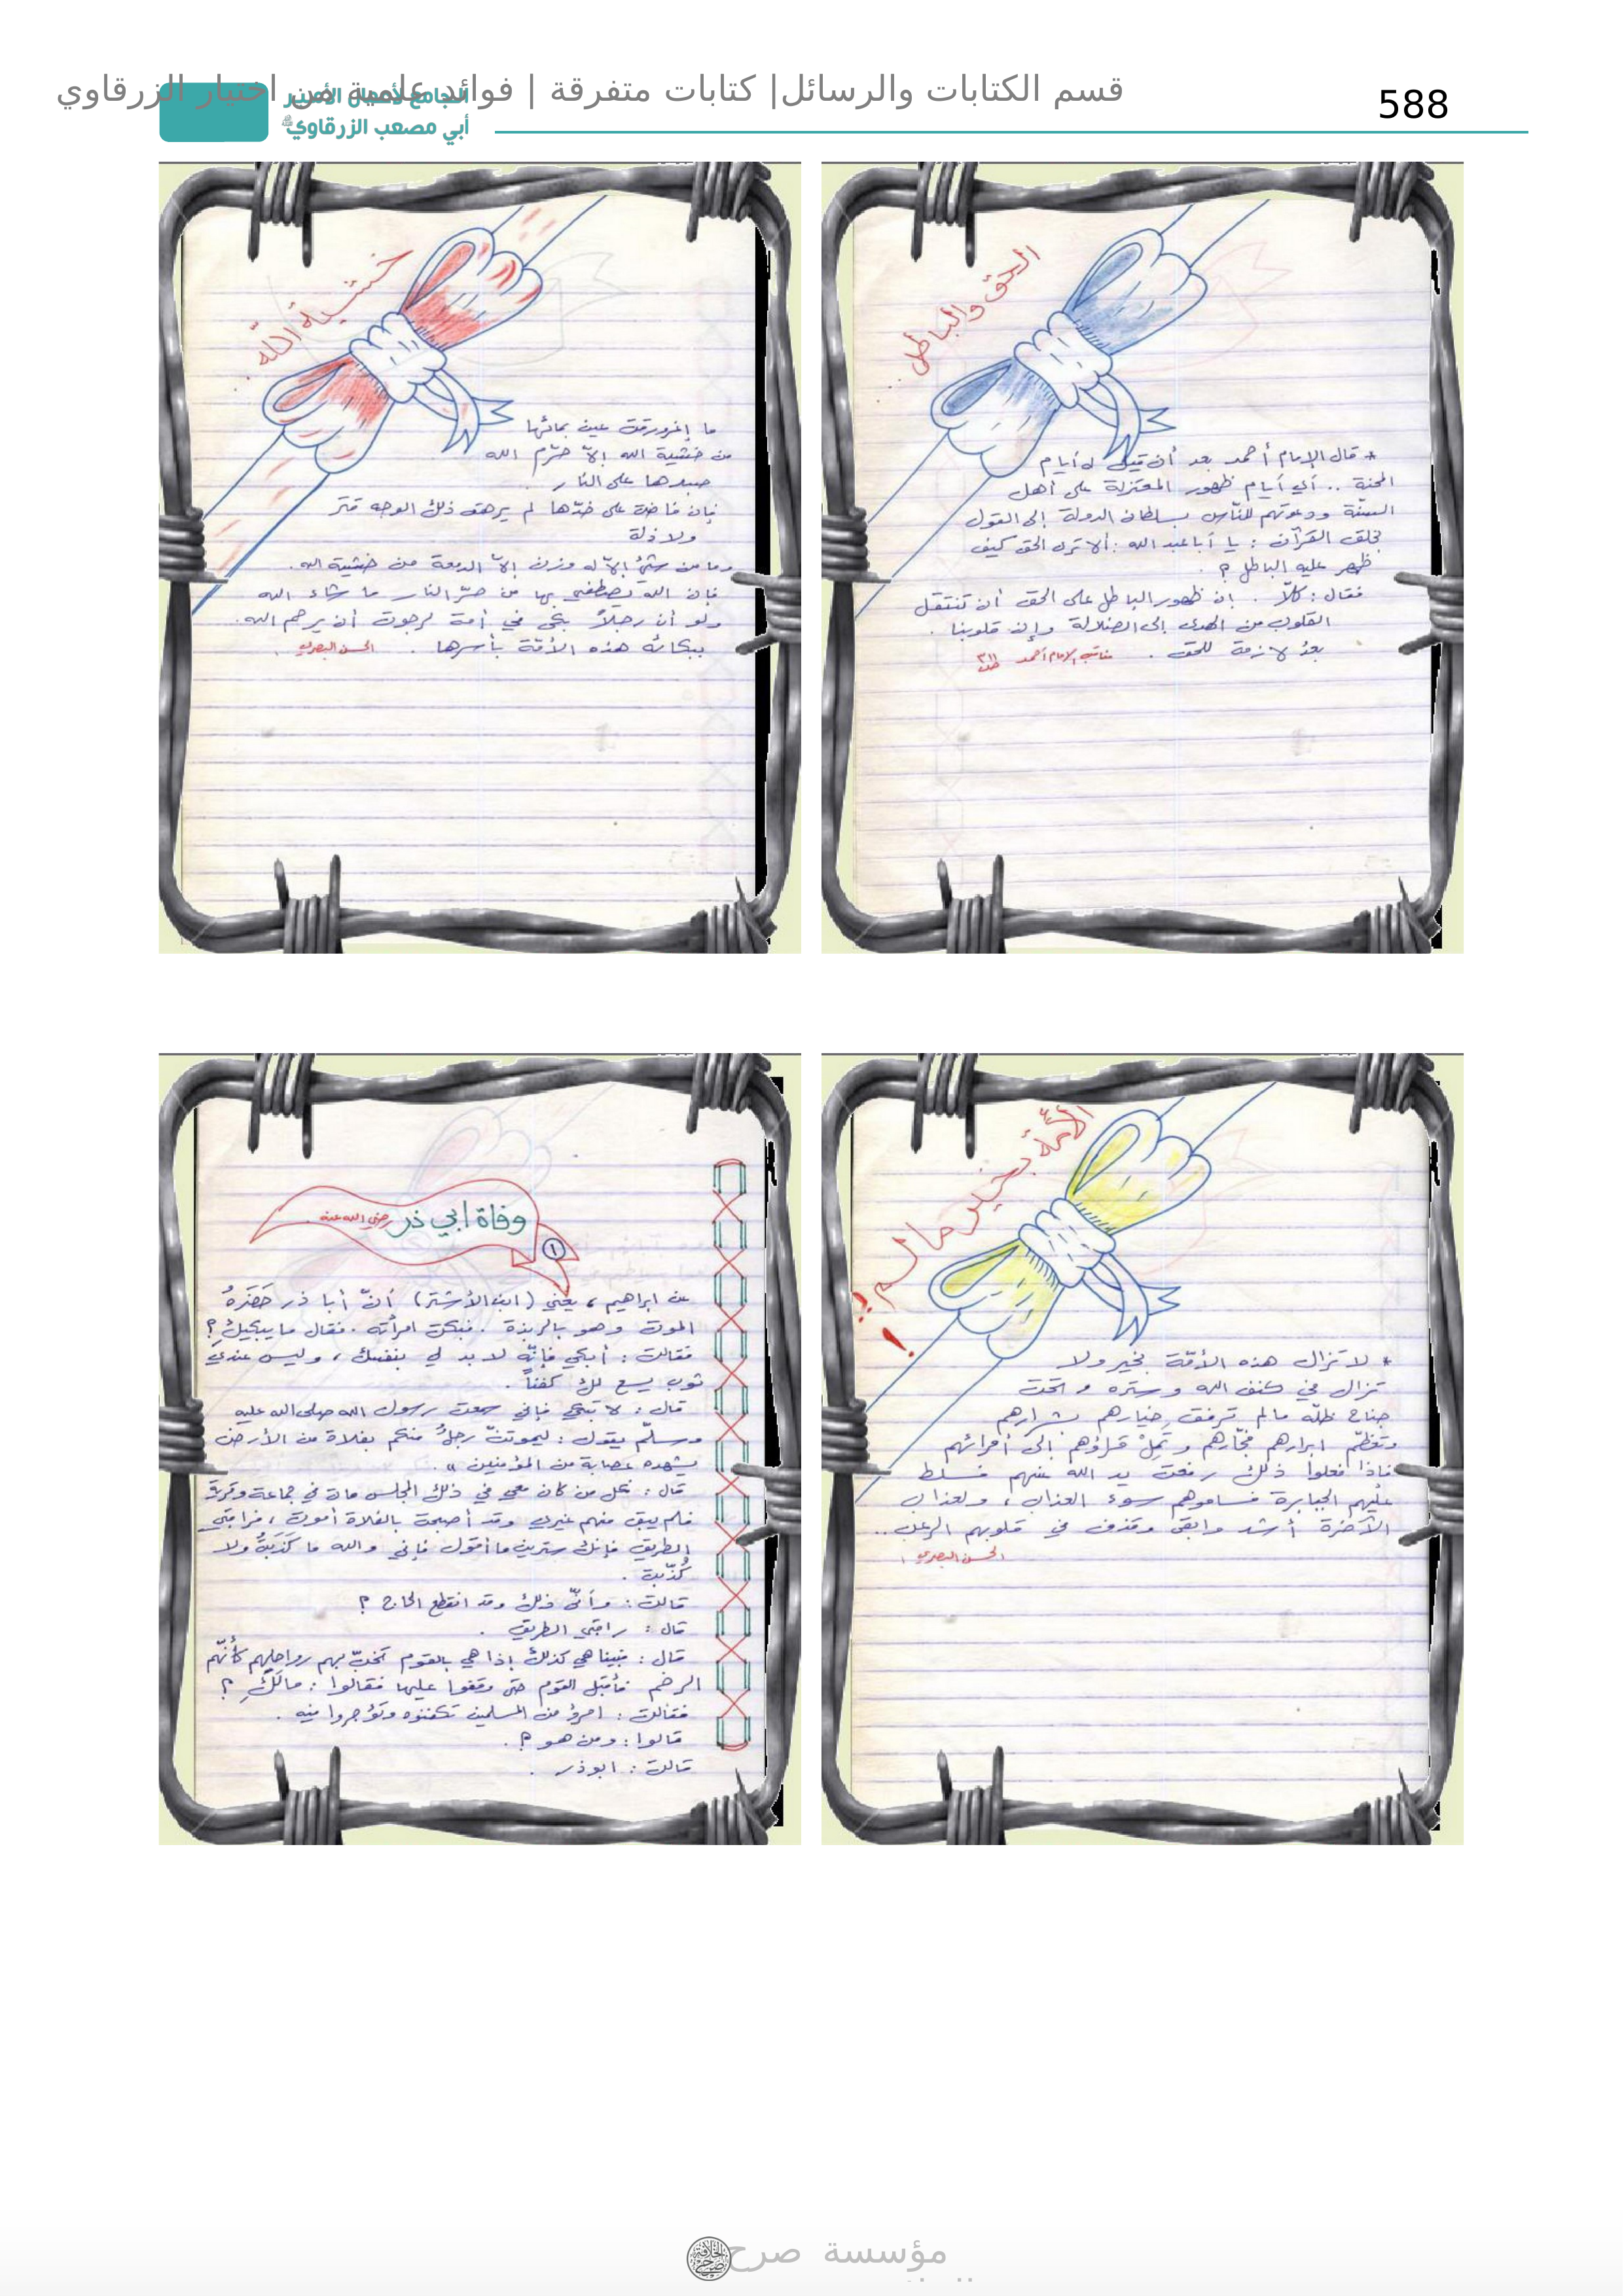 قسم الكتابات والرسائل| كتابات متفرقة | فوائد علمية من اختيار الزرقاوي
588
الجامع لأعمال الأمير
أبي مصعب الزرقاوي
الحق والباطل ..
* قال الإمام أحمد بعد أن قيل له أيام
المحنة .. أي أيام ظهور المعتزلة على أهل
السنّة ودعوتهم للنّاس بسلطان الدولة إلى القول
بخلق القرآن : يا أبا عبد الله : ألا ترى الحق كيف
ظهر عليه الباطل ؟ .
فقال : كلّا . إن ظهور الباطل على الحق أن تنتقل
القلوب من الهدى إلى الضلالة وإن قلوبنا .
بعدُ لازمة للحق . مناقب الإمام أحمد
خشية الله ..
ما إغرورقت عين بمائها
من خشية الله إلّا حرّم الله
جسدها على النار .
فإن فاضت على خدّها لم يرهق ذلك الوجه قتر
ولا ذلة
وما من شيء إلّا له وزن إلّا الدمعة من خشية الله .
فإن الله يطفي بها من حرّ النار ما شاء الله
ولو أن رجلاً بكى في أمة لرجوت أن يرحم الله .
ببكائه هذه الأمّة بأسرها . الحسن البصري .
الأمّة بخير ما لم !
* لا تزال هذه الأمّة بخير ولا
تزال في كنف الله وستره وتحت
جناح ظلّه مالم ترفق خيارهم بشرارهم
وتعظّم ابرارهم فجّارهم وتَمِلْ قرّاؤهم إلى أمرائهم
فاذا فعلوا ذلك رفعت يد الله عنهم فسلط
عليهم الجبابرة فساموهم سوء العذاب ، ولعذاب
الآخرة أشد وابقى وقذف في قلوبهم الرعب ..
الحسن البصري
وفاة ابي ذر رضي الله عنه
١
عن ابراهيم ، يعني (ابن الأشتر) أنّ أبا ذر حَضَرَهُ
الموت وهو بالربذة . فبكت امرأته . فقال ما يبكيكِ ؟
فقالت : أبكي فإنّه لا بد لي بنفسك ، وليس عندي
ثوب يسع لك كفناً .
قال : لا تبكي فإني سمعت رسول الله صلى الله عليه
وسلّم يقول : ليموتنّ رجلٌ منكم بفلاة من الأرض
يشهده عصابة من المؤمنين » .
قال : فكل من كان معي في ذلك المجلس مات في جماعة وقرية
فلم يبق منهم غيري وقد أصبحت بالفلاة أموت ، فراقبي
الطريق فإنك سترين ما أقول فإني والله ما كَذَبتُ ولا
كُذّبت .
قالت : وأنّى ذلك وقد انقطع الحاج ؟
قال : راقبي الطريق .
قال : فبينا هي كذلك إذا هي بالقوم تخبّ بهم رواحلهم كأنّهم
الرخم فأقبل القوم حتى وقفوا عليها فقالوا : مالَكِ ؟
فقالت : امرؤ من المسلمين تكفنوه وتؤجروا فيه .
قالوا : ومن هو ؟ .
قالت : ابوذر .
مؤسسة صرح